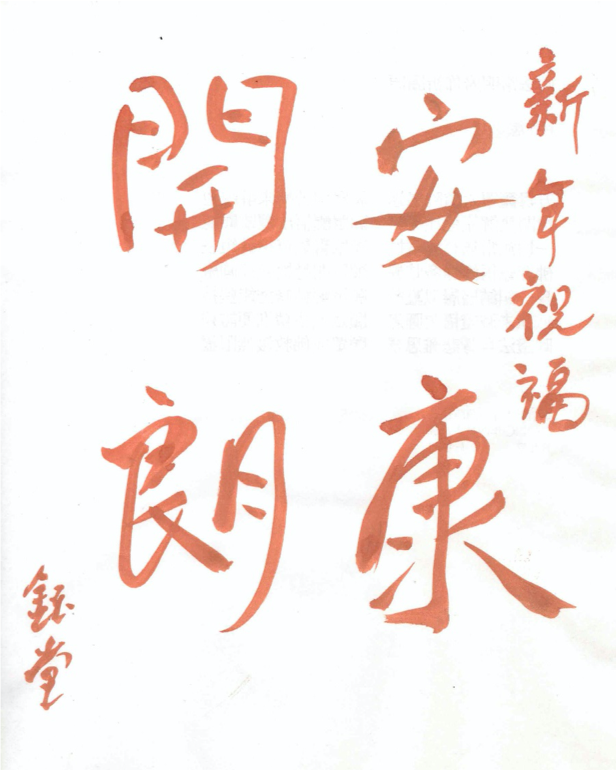 新年祝福
安康
開朗
鈺堂